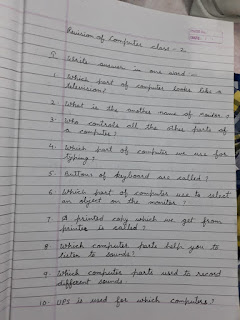 Revision of Computer class - 2
Q Write answer in one word -
1. Which part of computer looks like a
television?
2. What is the another name of
3. Who controls all the other parts of
a computer?
4. Which part of computer we use for
typing?
5. Buttons of keyboard are called?
6. Which part of computer use to select
an object on the monitor?
7. A printed copy which we get from
printer is called?
8. Which computer parts help you to
listen to sounds?
9. Which computer parts used to record
different sounds
10- UPS is used for which computers?